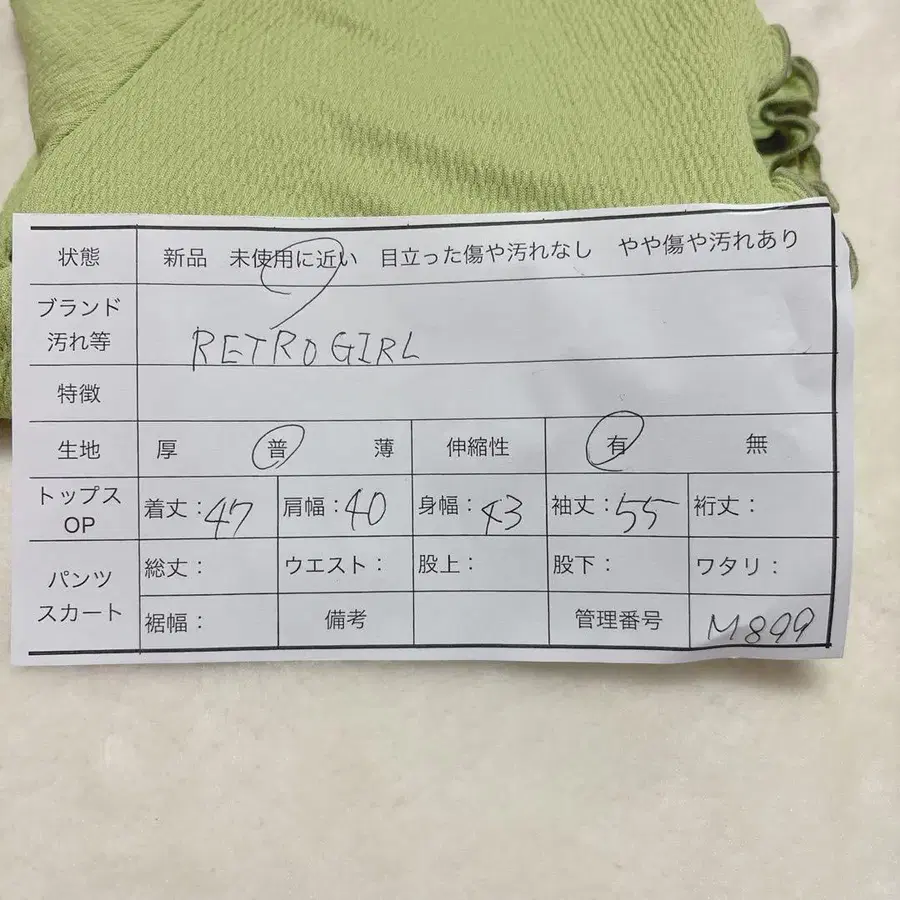 状態 新品 未使用に近い 目立った傷や汚れなし やや傷や汚れあり
ブランド
汚れ等 RETRO GIRL
特徴
生地 厚 普 薄 伸縮性 有 無
トップス
OP 着丈:47 肩幅:40 身幅:43 袖丈:55 裄丈:
パンツ
スカート
総丈: ウエスト: 股上: 股下: ワタリ:
裾幅: 備考 管理番号 M899